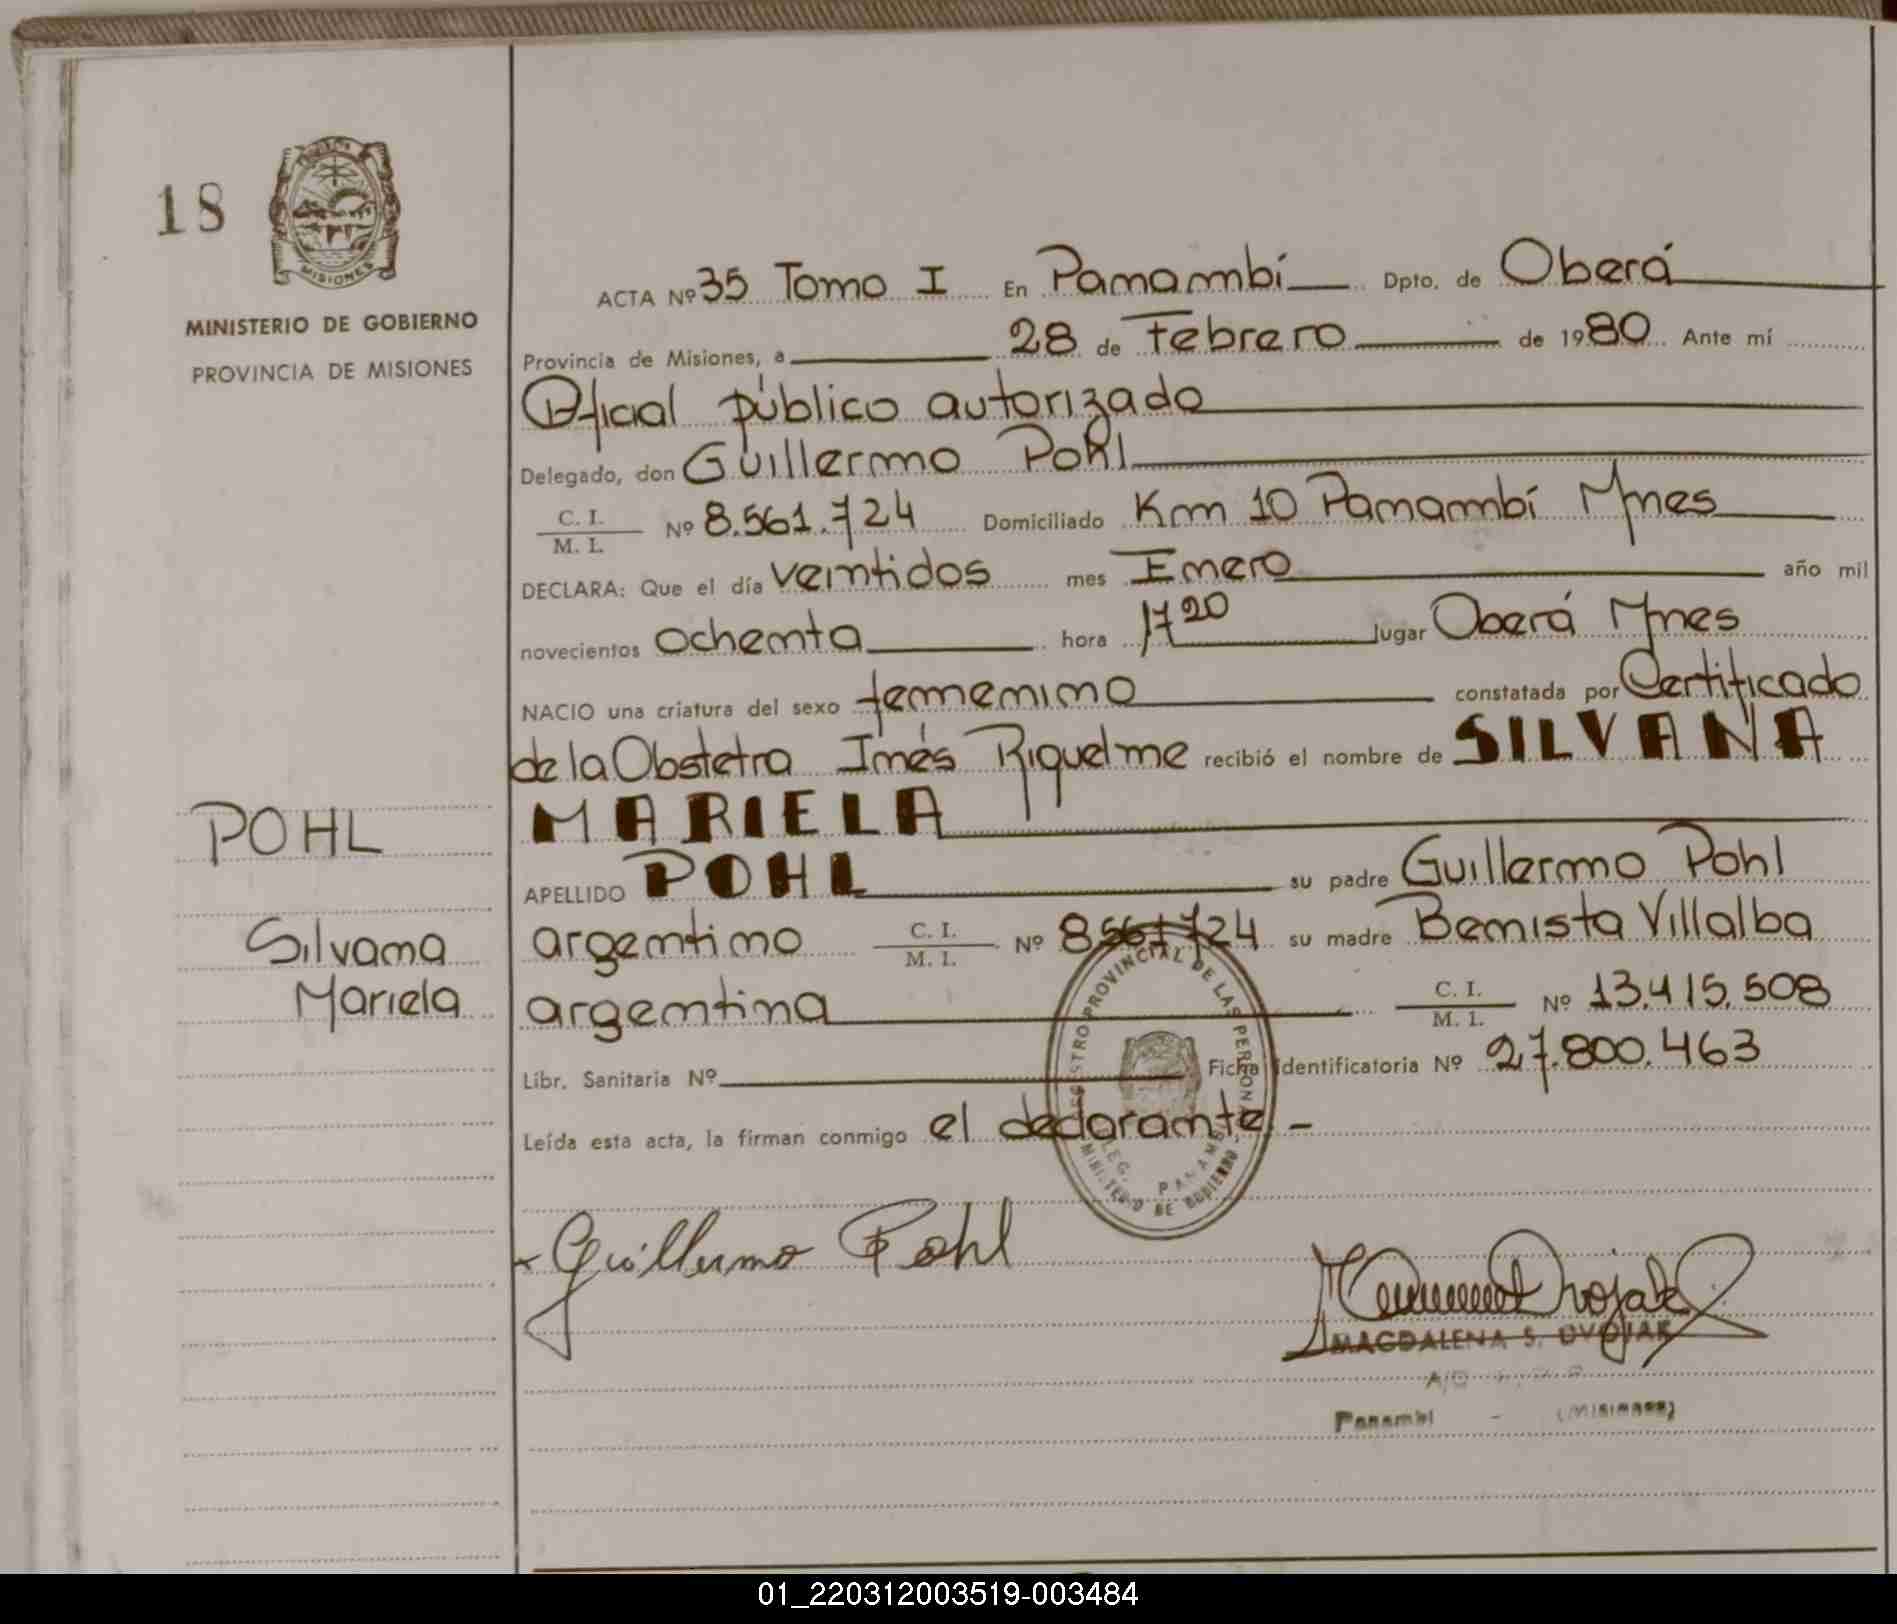 18
MISIONES
MINISTERIO DE GOBIERNO
PROVINCIA DE MISIONES
POHL
Silvana
Mariela
ACTA Nº 35 Tomo I En Panambí Dpto. de Oberá
Provincia de Misiones, a 28 de Febrero de 1980 Ante mí
Oficial público autorizado
Delegado, don Guillermo Pohl
C. I. / M. I. Nº 8.561.724 Domiciliado Km 10 Panambí Mnes
DECLARA: Que el día veintidos mes Enero año mil
novecientos ochenta hora 17 20 lugar Oberá Mnes
NACIO una criatura del sexo femenino constatada por Certificado
de la Obstetra Inés Riquelme recibió el nombre de SILVANA
MARIELA
APELLIDO POHL su padre Guillermo Pohl
argentino C. I. / M. I. Nº 8561724 su madre Benista Villalba
argentina C. I. / M. I. Nº 13.415.508
Libr. Sanitaria Nº Ficha Identificatoria Nº 27.800.463
Leída esta acta, la firman conmigo el declarante -
REGISTRO PROVINCIAL DE LAS PERSONAS
MINISTERIO DE GOBIERNO
Guillermo Pohl
MAGDALENA S. DVOJAK
A/C
Panambi - (Misiones)
01_220312003519-003484